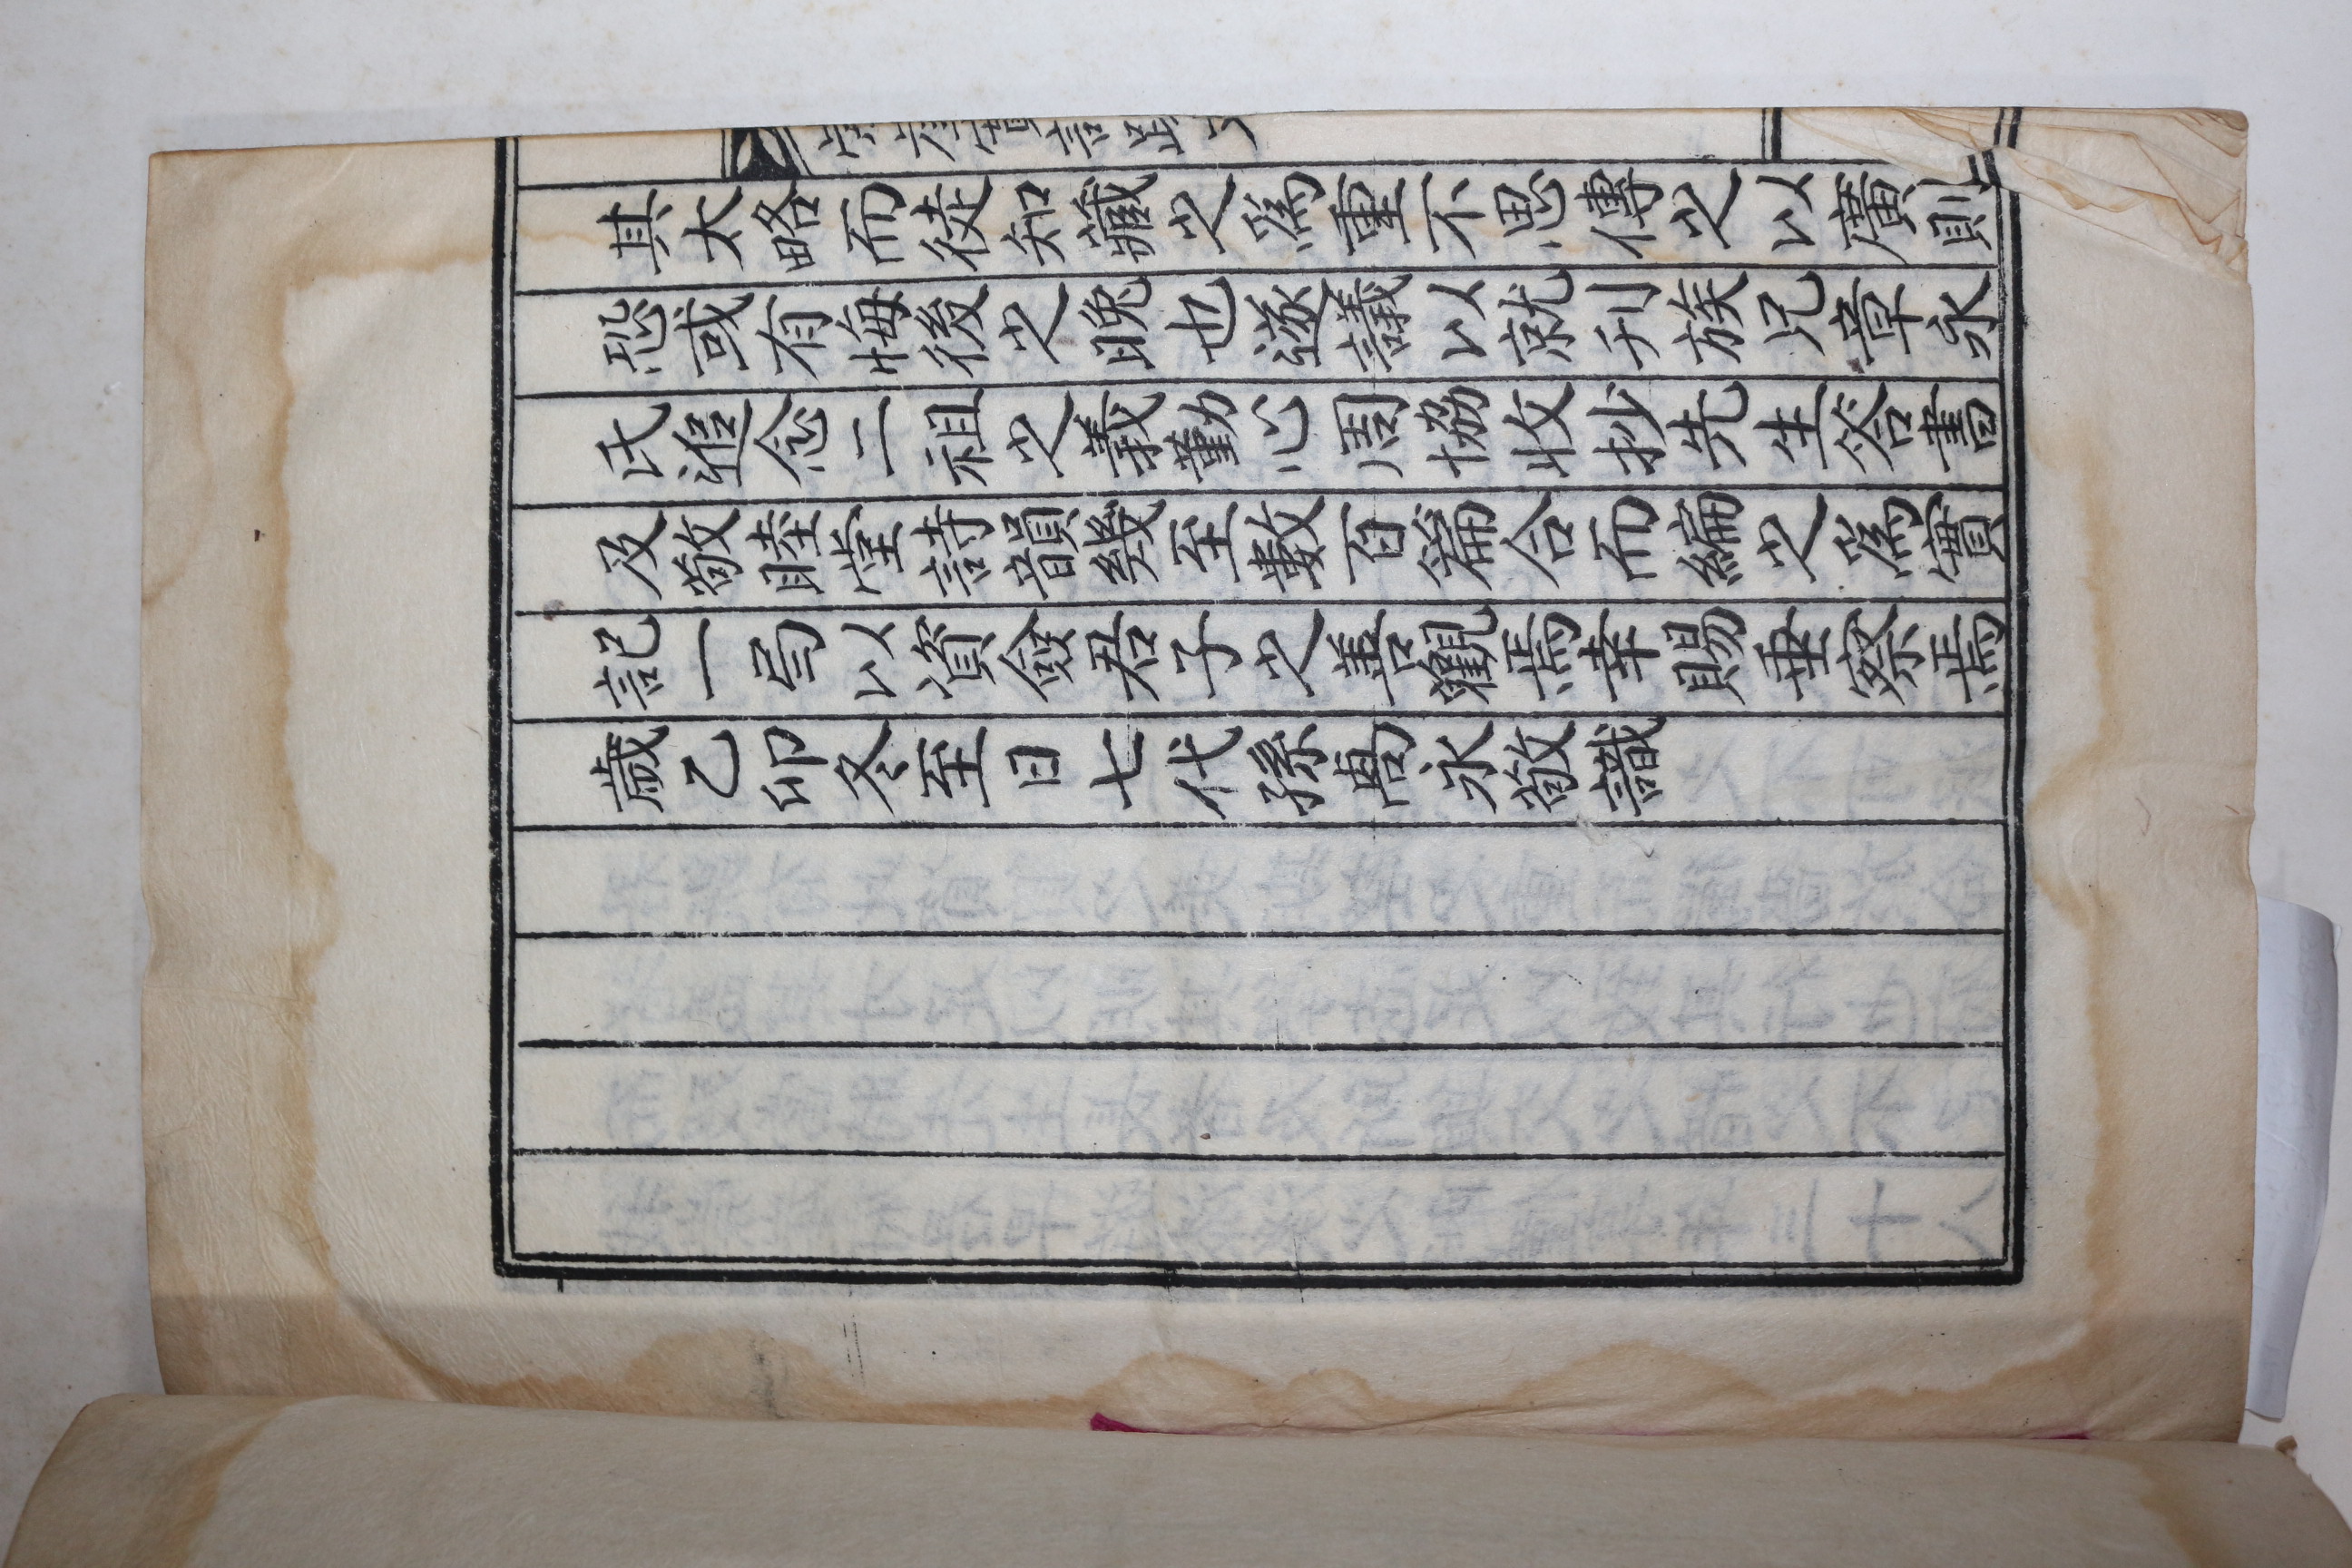 其太略而徒知藏之爲重不思傳之以廣則
恐或有悔後之晚也遂議以就刋族兄章永
氏追念二祖之義勤心周協收抄先生答書
及敬睦堂詩韻幾至數百篇合而編之爲實
記一局以資僉君子之善觀焉幸賜垂察焉
歲乙卯冬至日七代孫禼永敬識
實記跋